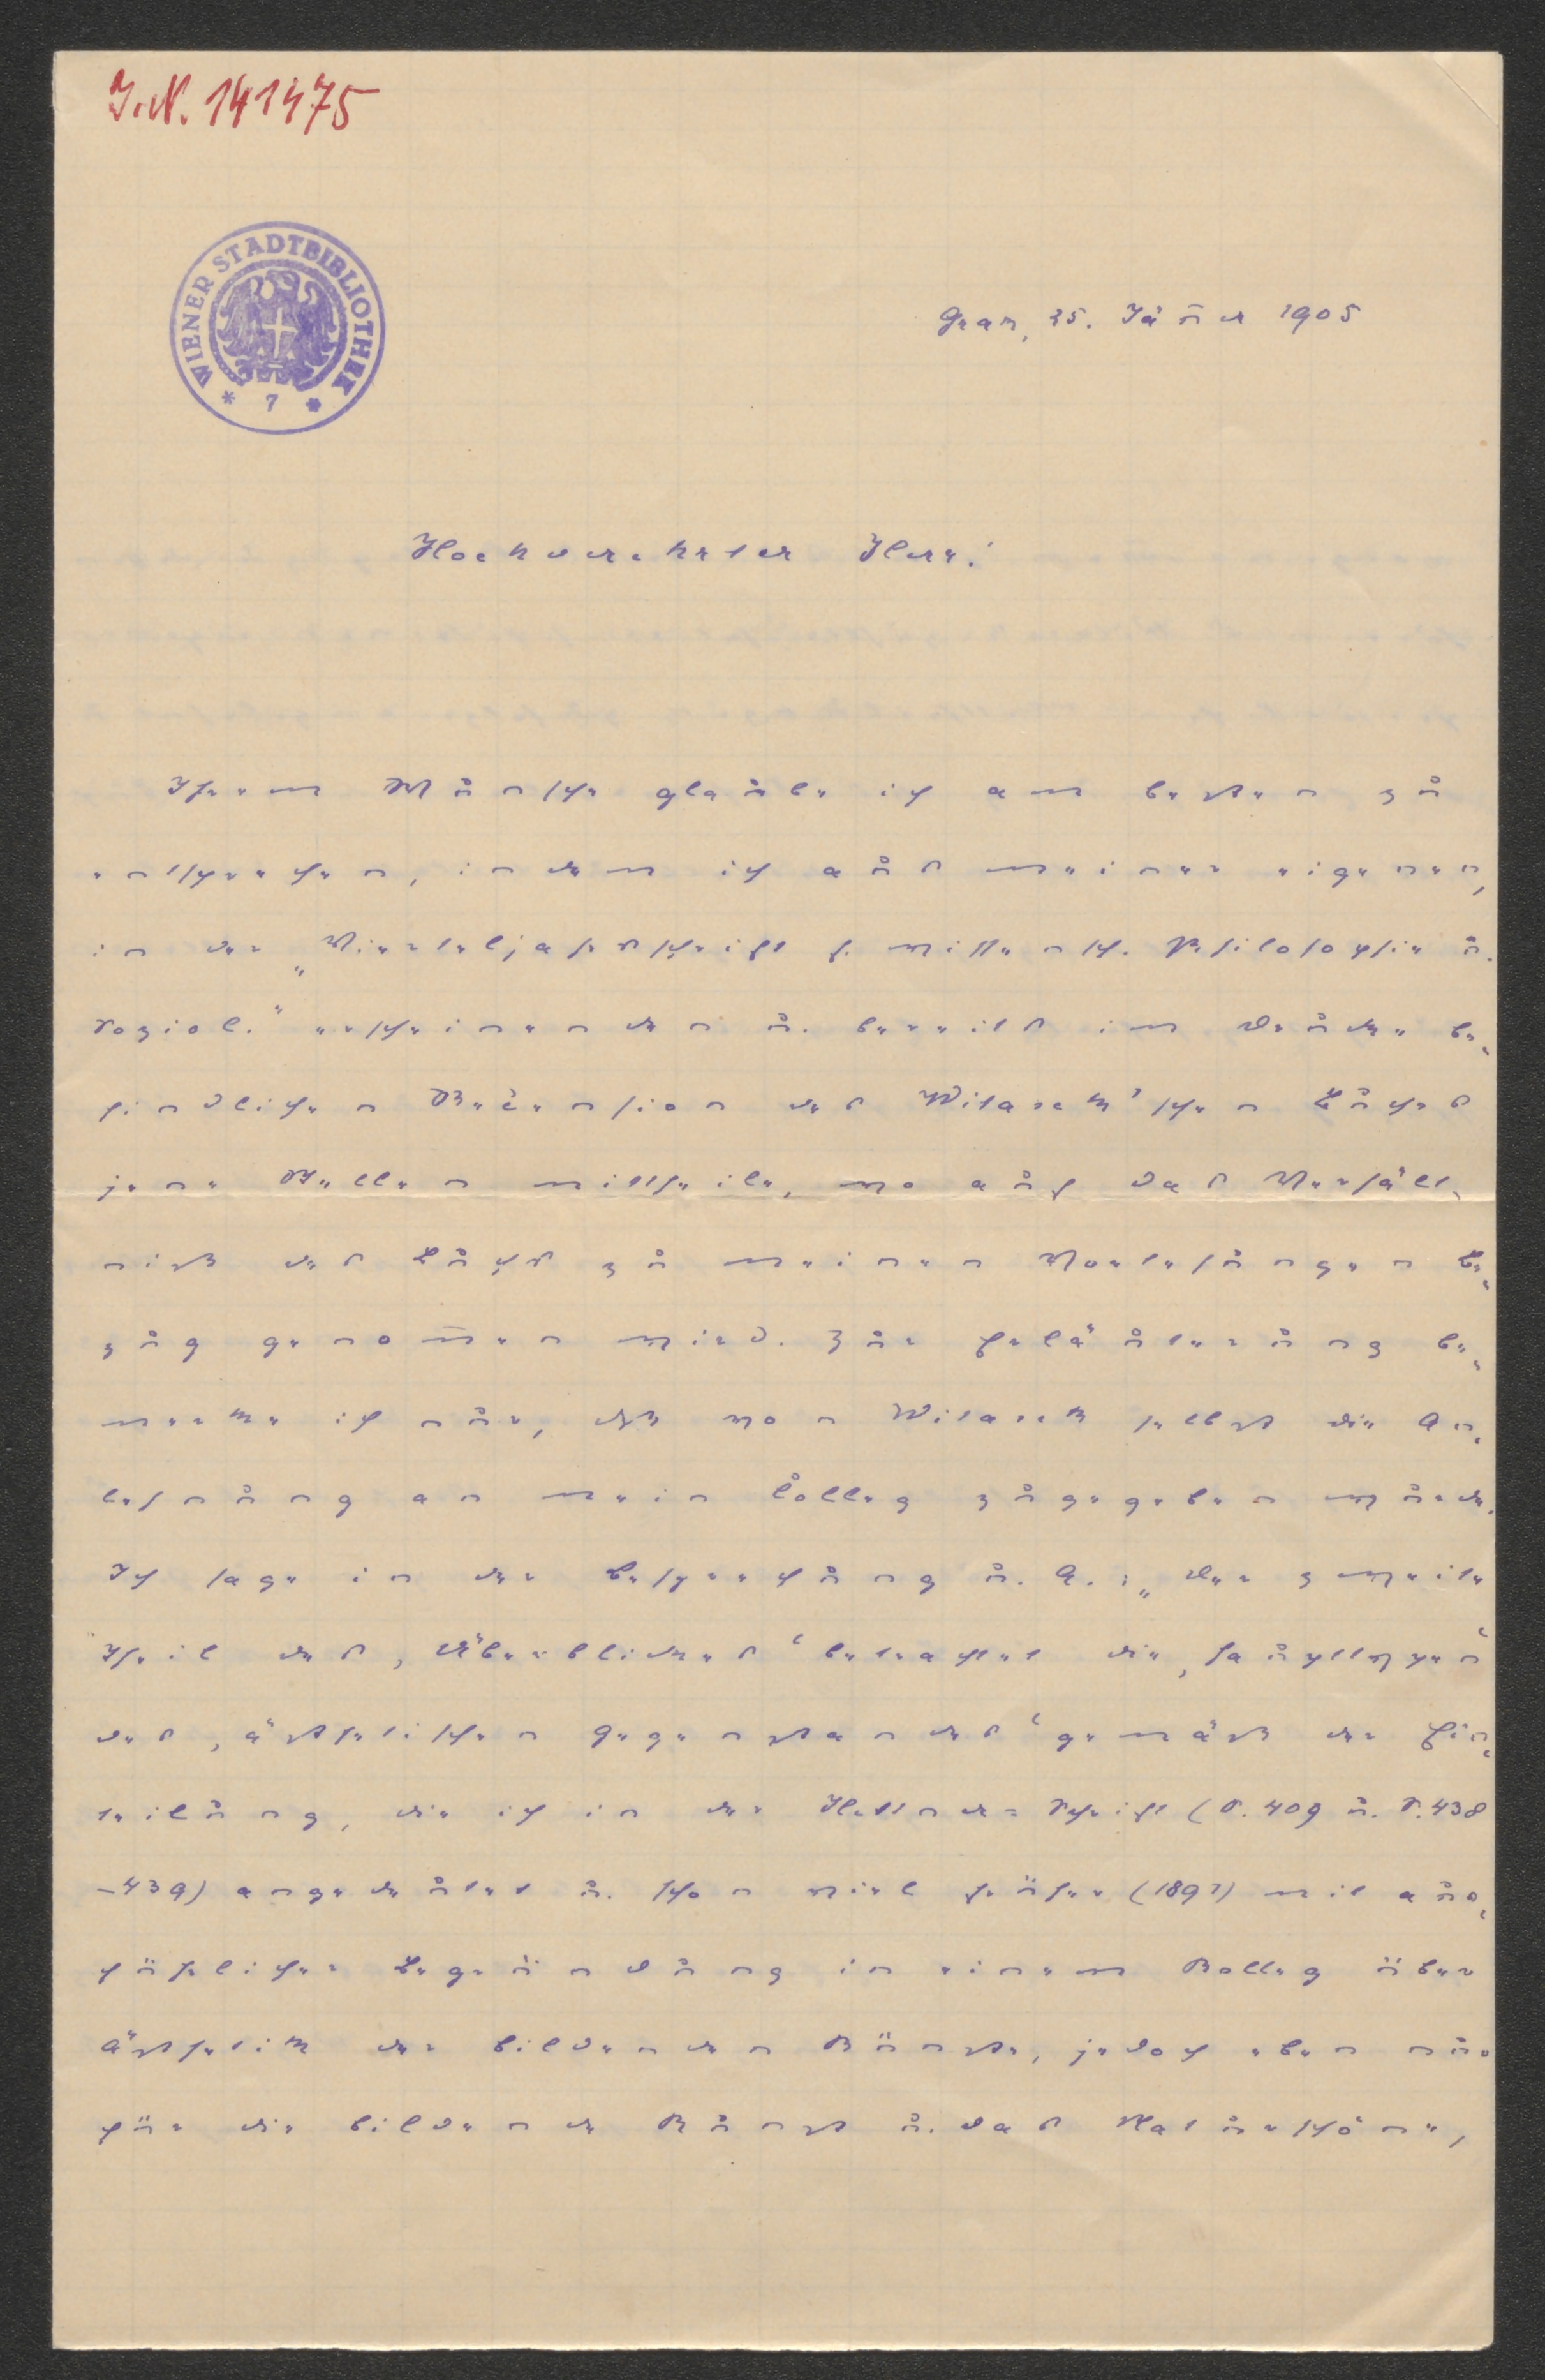 I.N. 141475
WIENER STADTBIBLIOTHEK
* 7 *
Graz, 25. Jänner 1905
Hochverehrter Herr!
Ihrem Wunsche glaube ich am besten zu
entsprechen, indem ich aus meiner eigenen,
in der „Vierteljahrsschrift f. wissensch. Philosophie u.
Soziol.“ erscheinenden u. bereits im Drucke be-
findlichen Recension des Witasek'schen Buches
jene Stellen mittheile, wo auf das Verhält-
niß des Buchs zu meinen Vorlesungen Be-
zug genommen wird. Zur Erläuterung be-
merke ich nur, daß von Witasek selbst die An-
lehnung an mein Colleg zugegeben wurde.
Ich sage in der Besprechung u. A.: „Der zweite
Theil des ‚Überblickes‘ betrachtet die ‚Haupttypen‘
des ‚ästhetischen Gegenstandes‘ gemäß der Ein-
teilung, die ich in der Hettner-Schrift (S. 409 u. S. 438
–439) angedeutet u. schon viel früher (1897) mit aus-
führlicher Begründung in einem Kolleg über
Ästhetik der bildenden Künste, jedoch eben nur
für die bildende Kunst u. das Naturschöne,